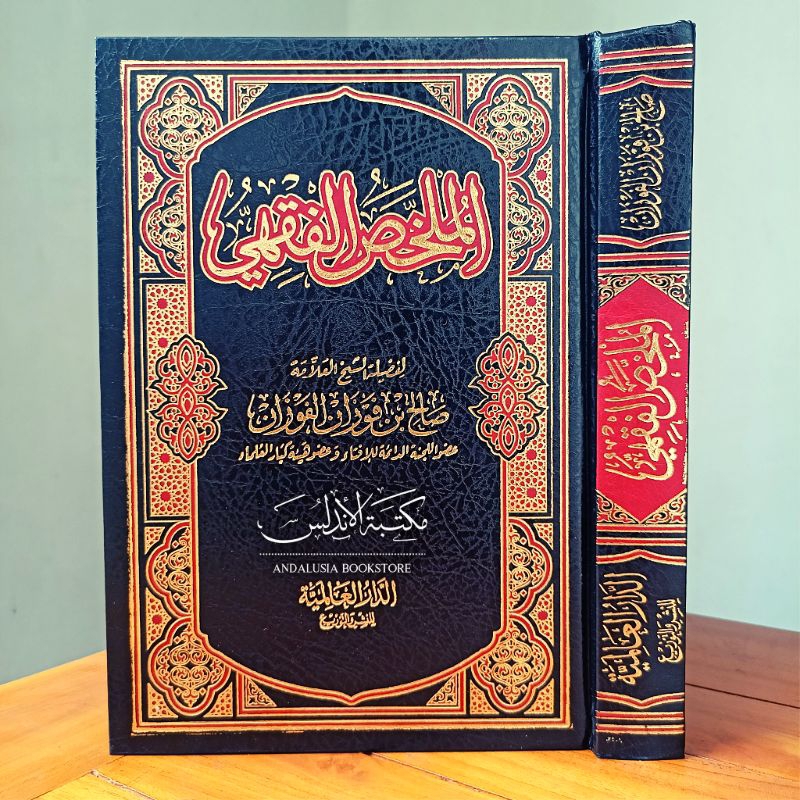 المُلَخَّصُ الفِقْهِيُّ
لفضيلة الشيخ العلامة
صالح بن فوزان الفوزان
عضو اللجنة الدائمة للإفتاء وعضو هيئة كبار العلماء
مكتبة الأندلس
ANDALUSIA BOOKSTORE
الدار العالمية
للنشر والتوزيع
صالح بن فوزان الفوزان
الملخص الفقهي
الدار العالمية
للنشر والتوزيع